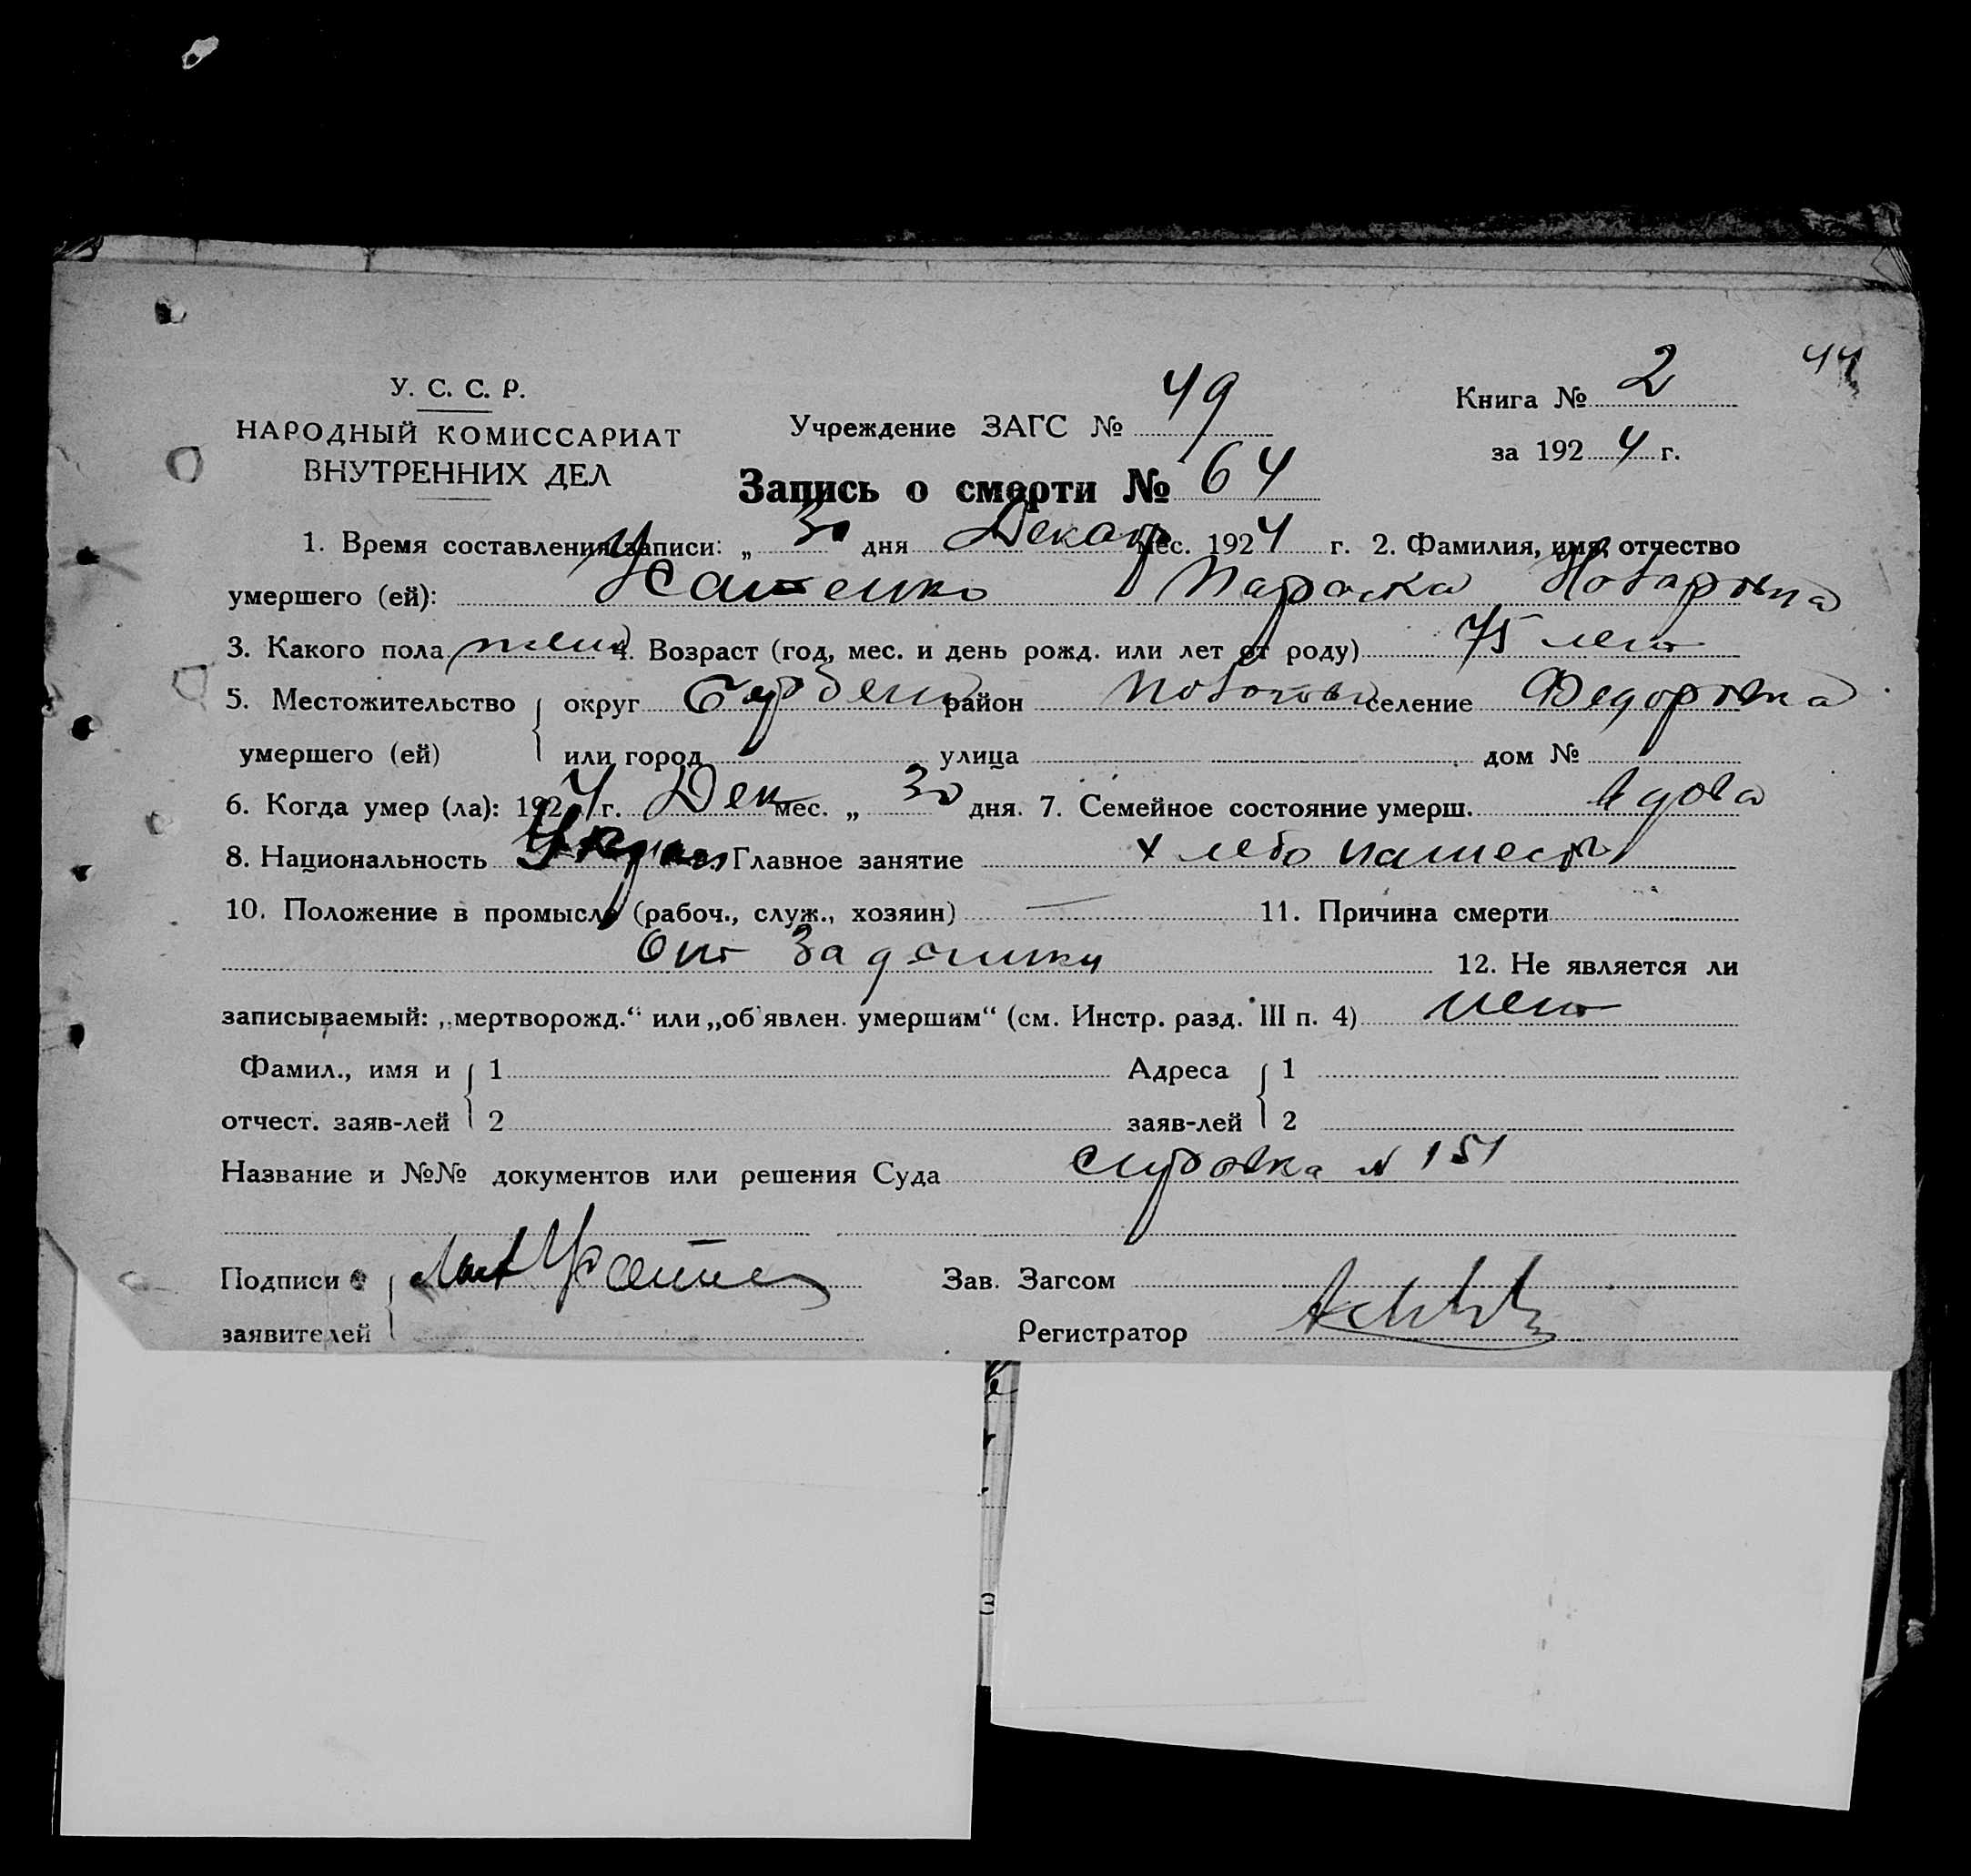 44
У. С. С. Р.
НАРОДНЫЙ КОМИССАРИАТ
ВНУТРЕННИХ ДЕЛ
Учреждение ЗАГС № 49
Книга № 2
за 1924 г.
Запись о смерти № 64
1. Время составления записи: „ 30 дня Декабр мес. 1924 г. 2. Фамилия, имя, отчество
умершего (ей): Параска
3. Какого пола жен 4. Возраст (год, мес. и день рожд. или лет от роду) 75 лет
5. Местожительство округ район селение Федоровка
умершего (ей) или город улица дом №
6. Когда умер (ла): 1924 г. Дек мес. „ 30 дня. 7. Семейное состояние умерш. вдова
8. Национальность Украин Главное занятие хлебопашеств
10. Положение в промысле (рабоч., служ., хозяин) — 11. Причина смерти
От 12. Не является ли
записываемый: „мертворожд.“ или „об'явлен. умершим“ (см. Инстр. разд. III п. 4) нет
Фамил., имя и 1 Адреса 1
отчест. заяв-лей 2 заяв-лей 2
Название и №№ документов или решения Суда N 151
Подписи Зав. Загсом
заявителей Регистратор